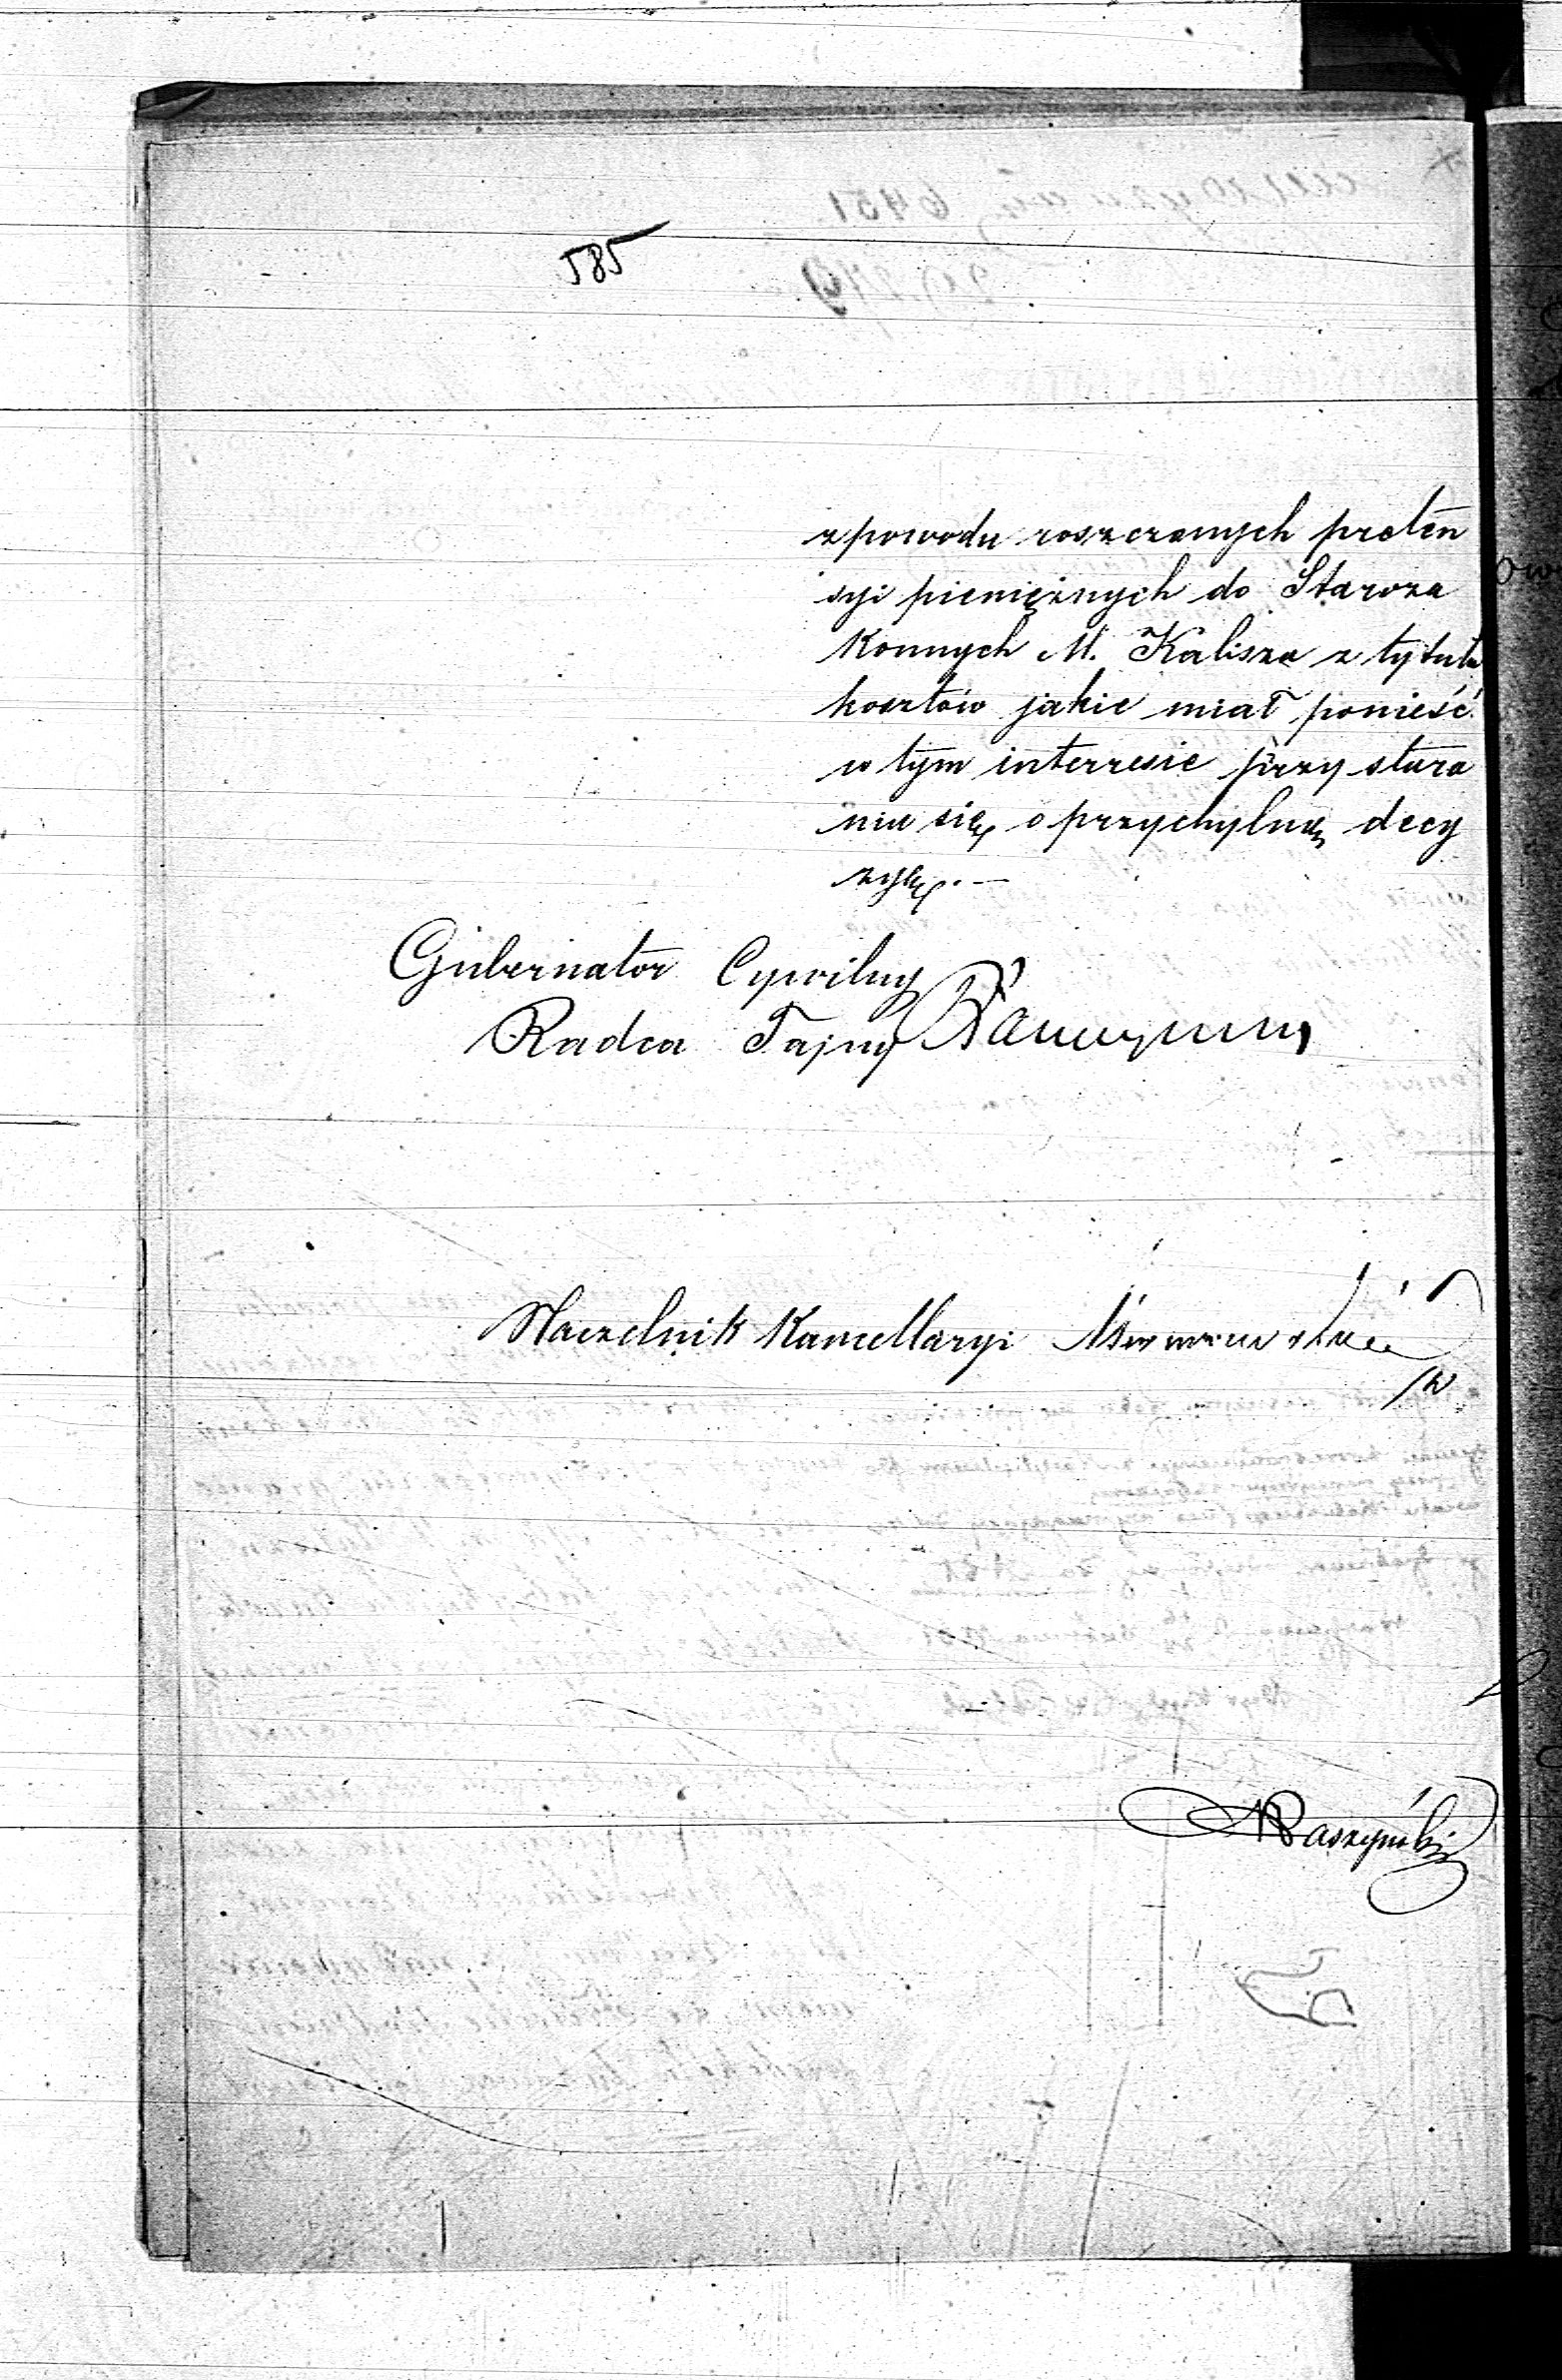 585
z powodu roszczonych preten
syi pieniężnych do Staroza
konnych M. Kalisza z tytułu
kosztów jakie miał ponieść
w tym interresie przy stara
niu się o przychylną decy
zyę. —
Gubernator Cywilny
Radca Tajny
Naczelnik Kancellaryi
Paszyński